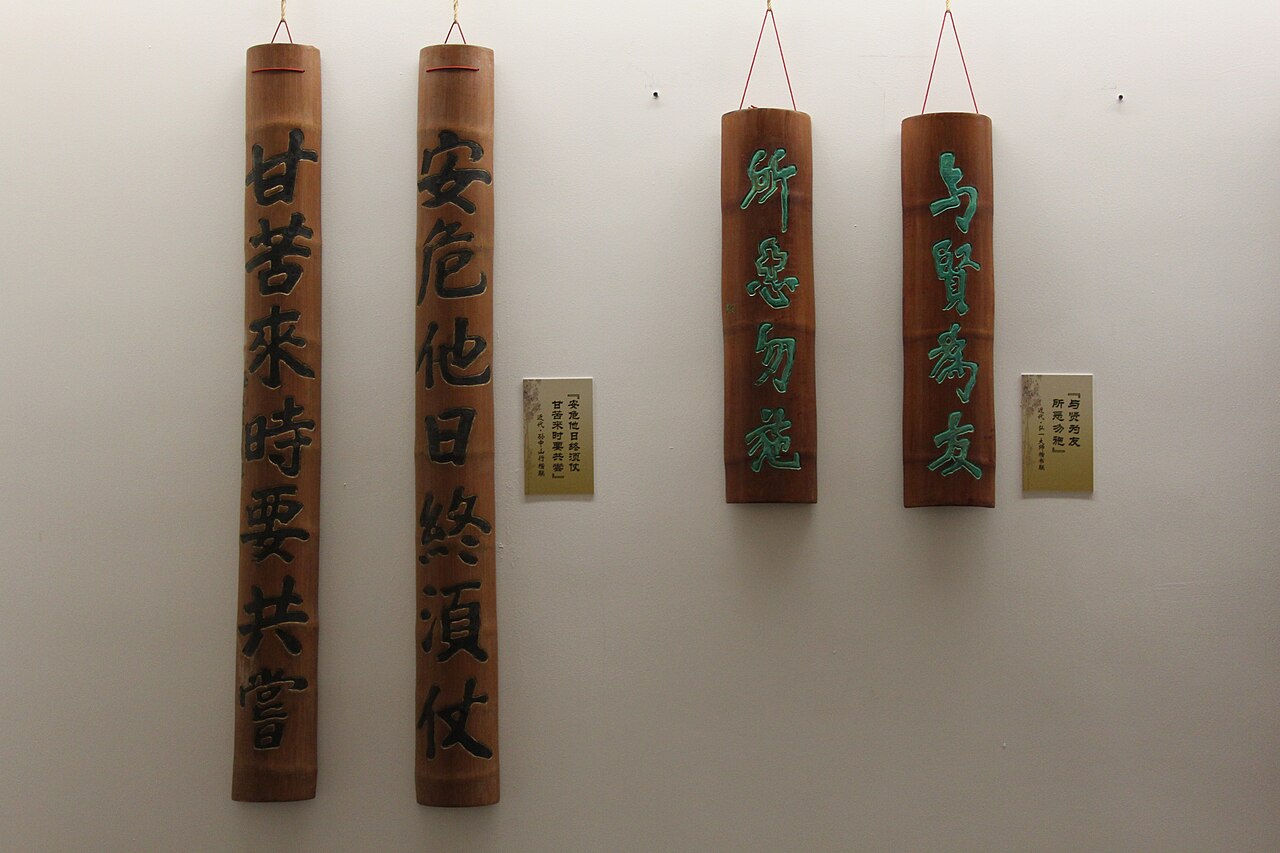 安危他日終須仗
甘苦來時要共嘗
『安危他日终须仗
甘苦来时要共尝』
近代·孙中山行楷联
与賢為友
所惡勿施
『与贤为友
所恶勿施』
近代·弘一大师楷书联